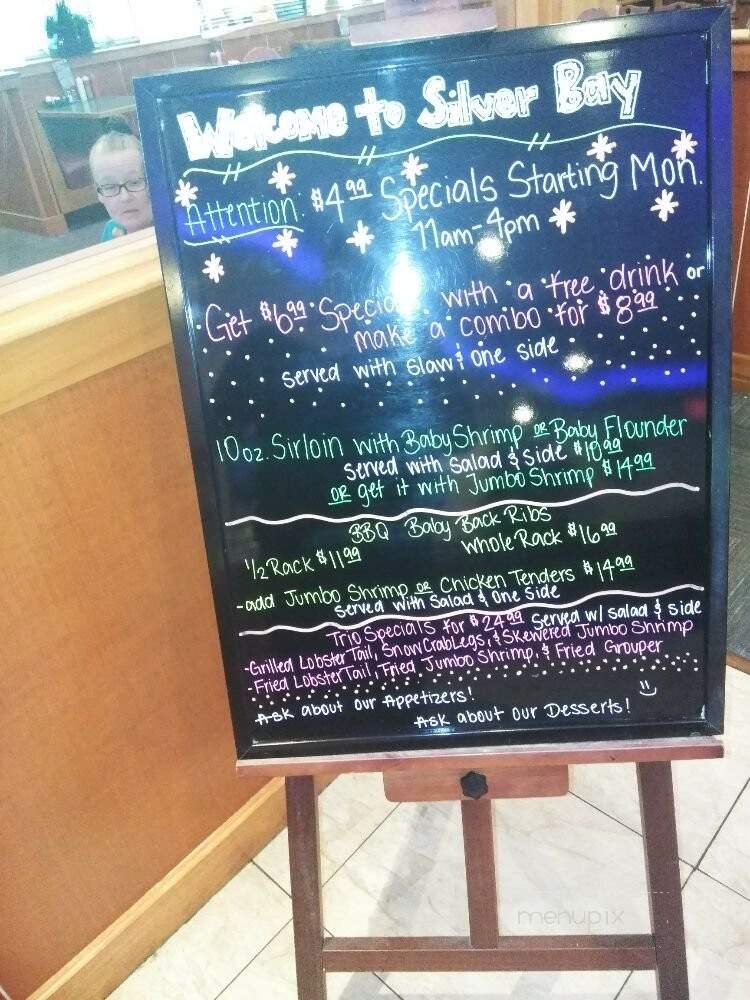 Welcome to Silver Bay
Attention: $4.99 Specials Starting Mon.
11am-4pm
Get $6.99 Specials with a free drink or
make a combo for $8.99
served with slaw & one side
10oz. Sirloin with Baby Shrimp OR Baby Flounder
served with salad & side $10.99
OR get it with Jumbo Shrimp $14.99
BBQ Baby Back Ribs
1/2 Rack $11.99 whole Rack $16.99
-add Jumbo Shrimp OR Chicken Tenders $14.99
served with Salad & One side
Trio Specials for $24.99 served w/ salad & side
-Grilled Lobster Tail, Snow Crab Legs, & Skewered Jumbo Shrimp
-Fried Lobster Tail, Fried Jumbo Shrimp, & Fried Grouper
Ask about our Appetizers!
Ask about our Desserts!
menupix